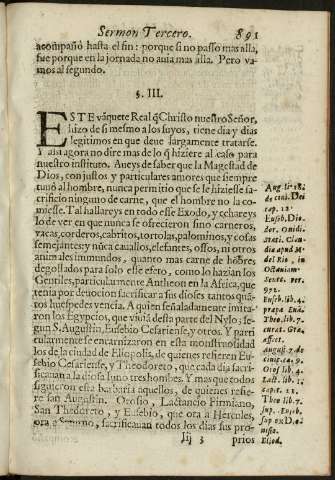 Sermon Tercero. 891
acompañò hasta el fin: porque si no passo mas alla,
fue porque en la jornada no auia mas alla. Pero va-
mos al segundo.
§. III.
ESTE váquete Real q̃ Christo nuestro Señor,
hizo de si mesmo a los suyos, tiene dia y dias
legitimos en que deue largamente tratarse.
Y assi agora no dire mas de lo q̃ hiziere al caso para
nuestro instituto. Aueys de saber que la Magestad de
Dios, con justos y particulares amores que siempre
tuuo al hombre, nunca permitio que se le hiziesse sa-
crificio ninguno de carne, que el hombre no la co-
miesse. Tal hallareys en todo esse Exodo, y echareys
lo de ver en que nunca se ofrecieron sino carneros,
vacas, corderos, cabritos, tortolas, palominos, y cosas
semejantes; y nũca cauallos, elefantes, ossos, ni otros
animales immundos, quanto mas carne de hõbres,
degollados para solo esse efeto, como lo hazian los
Gentiles, particularmente Antheon en la Africa, que
tenia por deuocion sacrificar a sus dioses tantos quã-
tos huespedes vencia. A quien señaladamente imita-
ron los Egypcios, que viuiã desta parte del Nylo; se-
gun S. Augustin, Eusebio Cesariense, y otros. Y parti
cularmente se encarnizaron en esta monstruosidad
los de la ciudad de Eliopolis, de quienes refieren Eu-
sebio Cesariense, y Theodoreto, que cada dia sacri-
ficauan a la diosa Iuno tres hombres. Y mas que todos
siguieron esta barbaria aquellos, de quienes refie-
ren san Augustin. Orosio, Lactancio Firmiano,
San Theodoreto, y Eusebio, que ora a Hercules,
ora a Saturno, sacrificauan todos los dias sus pro-
Iij 3 prios
Aug. li. 18.
de ciui. Dei
cap. 12.
Euseb. Dio.
Martin
del Rio, in
Octauiam
972.
Euseb. lib. 4.
prępa. Euã.
Theo. lib. 7.
curat. Gra.
affect.
August. 7. de
ciuit. ca. 9.
Oros. lib. 4.
Lact. lib. 1.
capit. 21.
Theo. lib. 7.
sup. Euseb.